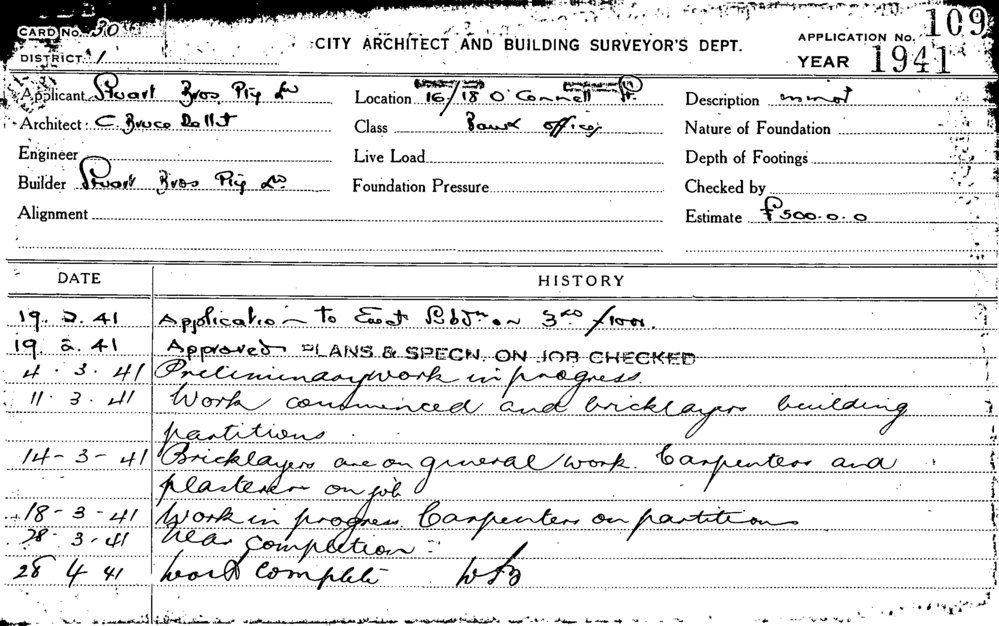 CARD No. 30
CITY ARCHITECT AND BUILDING SURVEYOR'S DEPT.
APPLICATION No. 109
DISTRICT 1
YEAR 1941
Applicant Stuart Bros Pty Ld
Location 16/18 O'Connell St.
Description minor
Architect C. Bruce Dellit
Class Bank offices
Nature of Foundation
Engineer
Live Load
Depth of Footings
Builder Stuart Bros Pty Ld
Foundation Pressure
Checked by
Alignment
Estimate £500.0.0
DATE HISTORY
19. 2. 41 Application to Erect on 3rd
19. 2. 41 Approved PLANS & SPECN. ON JOB CHECKED
4. 3. 41 Preliminary work in progress.
11. 3. 41 Work commenced and bricklayers building
partitions.
14-3-41 Bricklayers are on general work. Carpenters and
plasterers on job
18-3-41 Work in progress. Carpenters on partitions
28-3-41 Near completion.
28 4 41 Work complete